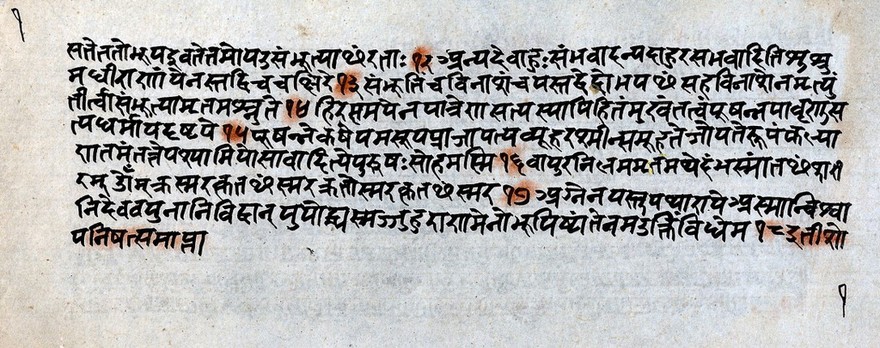 सतेततोभूयइवतेतमोयउसंभूत्याᳬरताः १२ अन्यदेवाहुःसंभवादन्यदाहुरसंभवादितिशुश्रु
मधीराणांयेनस्तद्विचचक्षिरे १३ संभूतिंचविनाशंचयस्तद्वेदोभयᳬसहविनाशेनमृत्युं
तीर्त्वासंभूत्यामृतमश्नुते १४ हिरण्मयेनपात्रेणसत्यस्यापिहितंमुखंतत्त्वंपूषन्नपावृणुस
त्यधर्मायदृष्टये १५ पूषन्नेकर्षेयमसूर्यप्राजापत्यव्यूहरश्मीन्समूहतेजोयत्तेरूपंकल्या
णतमंतत्तेपश्यामियोसावादित्येपुरुषःसोहमस्मि १६ वायुरनिलममृतमथेदंभस्मांतᳬशरी
रम् ॐक्रतोस्मरकृतᳬस्मरक्रतोस्मरकृतᳬस्मर १७ अग्नेनयसुपथारायेअस्मान्विश्वा
निदेववयुनानिविद्वान् युयोध्यस्मज्जुहुराणमेनोभूयिष्ठांतेनमउक्तिंविधेम १८ इतीशो
पनिषत्समाप्ता